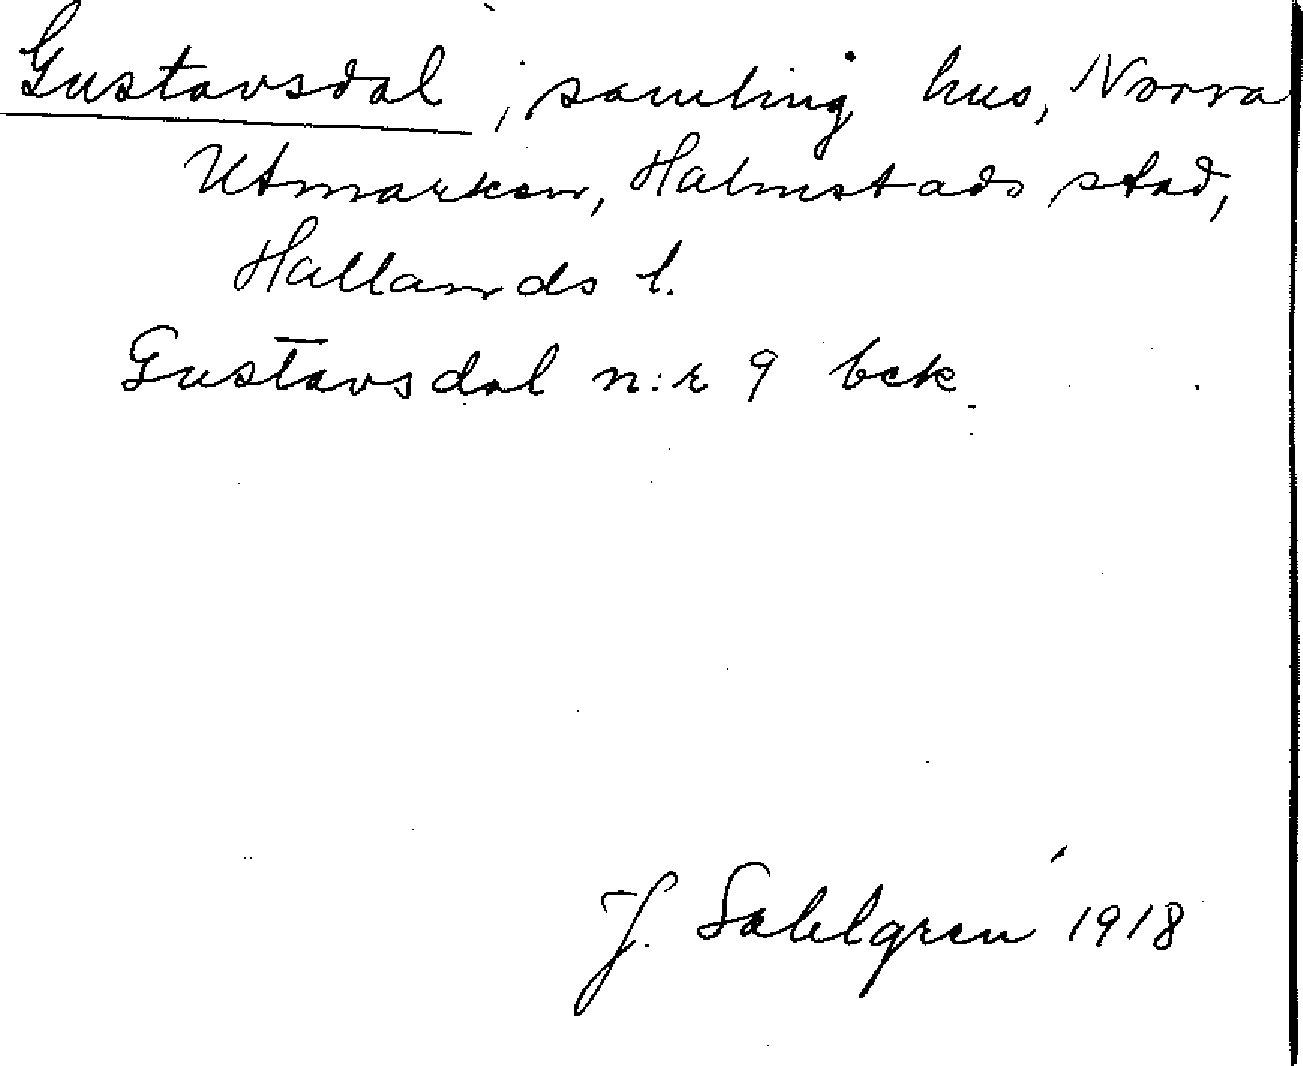 Gustavsdal, samling hus, Norra
Utmarken, Halmstads stad,
Hallands l.
Gustavsdal n:r 9 bek
J. Sahlgren 1918